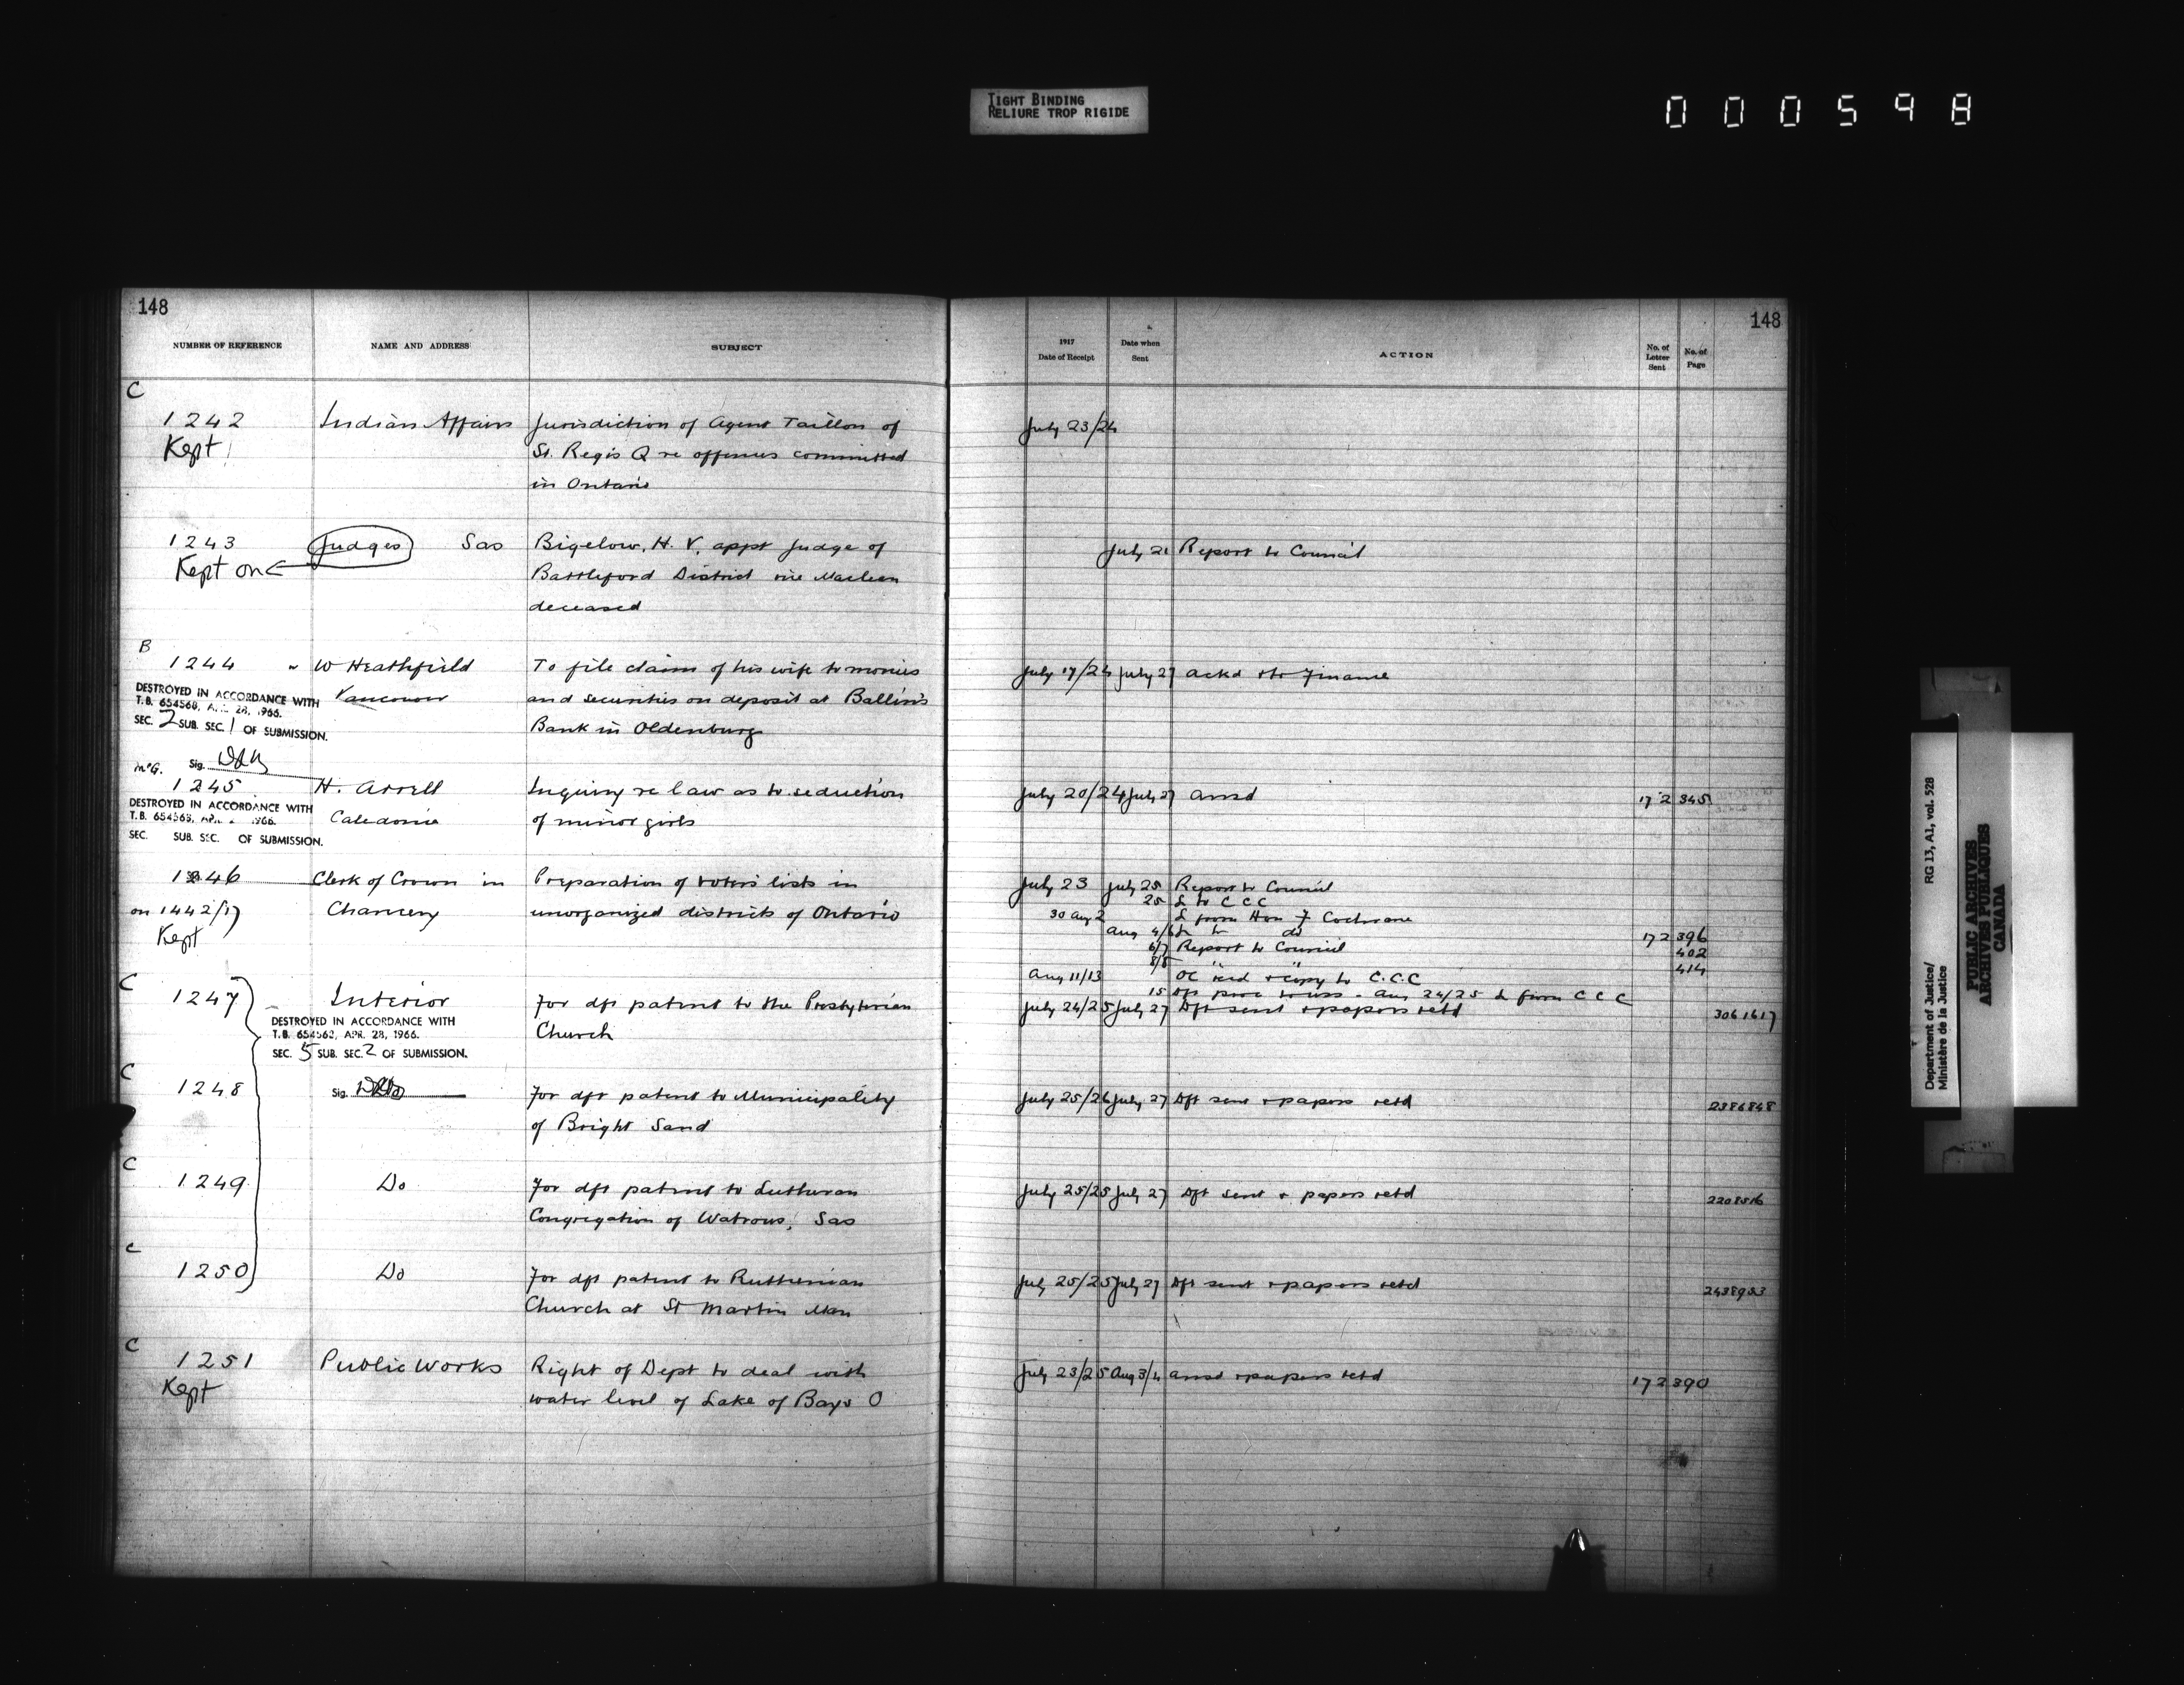 TIGHT BINDING
RELIURE TROP RIGIDE
000598
148
NUMBER OF REFERENCE NAME AND ADDRESS SUBJECT
C
1242 Indian Affairs Jurisdiction of Agent Taillon of
Kept St. Regis Q re offences committed
in Ontario
1243 Judges Sas Bigelow, H. V. appt Judge of
Kept on Battleford District vice Maclean
deceased
B
1244 W Heathfield To file claim of his wife to monies
DESTROYED IN ACCORDANCE WITH Vancouver and securities on deposit at Ballin's
T.B. 654568, APR. 28, 1966.
SEC. 2 SUB. SEC. 1 OF SUBMISSION. Bank in Oldenburg
McG. Sig.
1245 H. Arrell Inquiry re law as to seduction
DESTROYED IN ACCORDANCE WITH
T.B. 654568, 1966. Caledonia of minor girls
SEC. SUB. SEC. OF SUBMISSION.
1246 Clerk of Crown in Preparation of voters lists in
on 1442/17 Chancery unorganized districts of Ontario
Kept
C
1247 Interior For dft patent to the Presbyterian
DESTROYED IN ACCORDANCE WITH Church
T.B. 654562, APR. 28, 1966.
SEC. 5 SUB. SEC. 2 OF SUBMISSION.
C
1248 Sig. For dft patent to Municipality
of Bright Sand
C
1249 Do For dft patent to Lutheran
Congregation of Watrous, Sas
C
1250 Do For dft patent to Ruthenian
Church at St Martin Man
C
1251 Public Works Right of Dept to deal with
Kept water level of Lake of Bays O
148
1917 Date of Receipt Date when Sent ACTION No. of Letter Sent No. of Page
July 23/24
July 21 Report to Council
July 17/24 July 27 Ackd & to Finance
July 20/24 July 27 Ansd 172 345
July 23 July 25 Report to Council
25 L to C C C
30 Aug 2 L from Hon F Cochrane
Aug 4/6 L to do 172 396
6/7 Report to Council 402
8/8 " " 414
Aug 11/13 OC recd & copy to C.C.C
15 Aug 24/25 L from C C C
July 24/25 July 27 Dft sent & papers retd 3061617
July 25/26 July 27 Dft sent & papers retd 2386848
July 25/25 July 27 Dft sent & papers retd 2208516
July 25/25 July 27 Dft sent & papers retd 2438953
July 23/25 Aug 3/4 Ansd & papers retd 172 390
Department of Justice/
Ministère de la Justice
RG 13, A1, vol. 528
PUBLIC ARCHIVES
ARCHIVES PUBLIQUES
CANADA